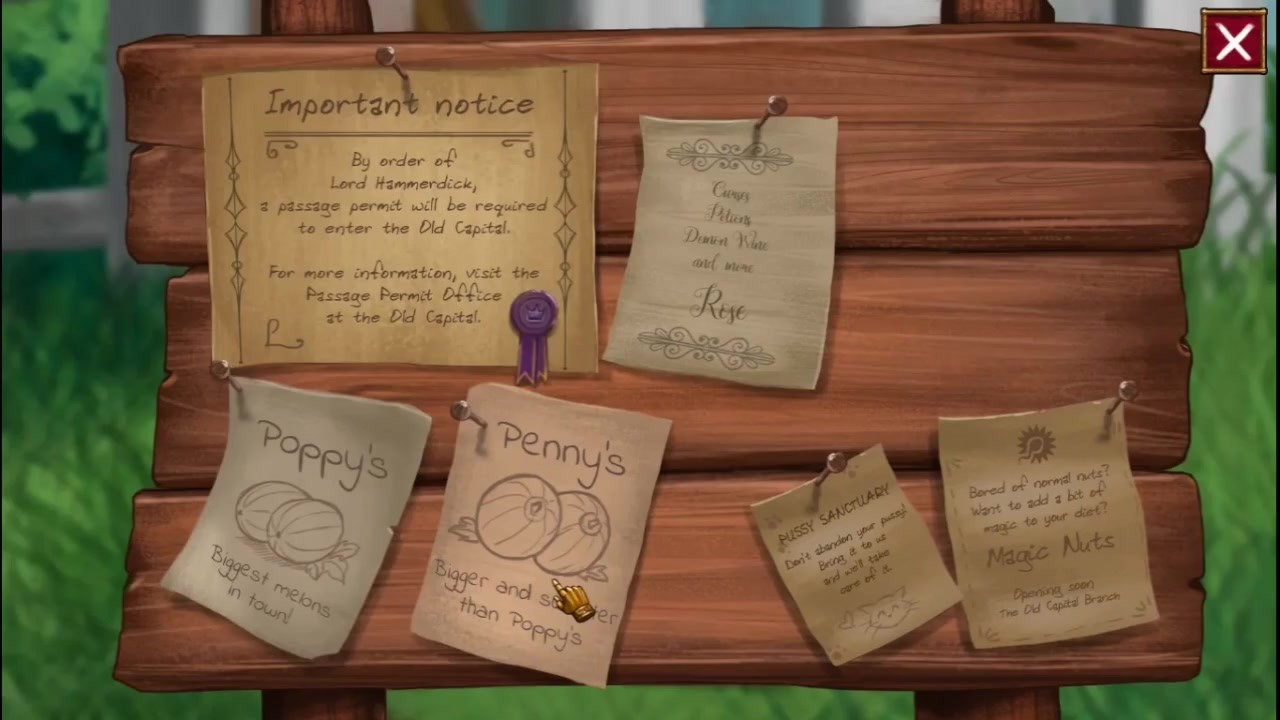 Important notice
By order of
Lord Hammerdick,
a passage permit will be required
to enter the Old Capital.
For more information, visit the
Passage Permit Office
at the Old Capital.
L
Curses
Potions
Demon Wine
and more
Rose
Poppy's
Biggest melons
in town!
Penny's
Bigger and
than Poppy's
PUSSY SANCTUARY
Don't abandon your pussy!
Bring it to us
and we'll take
care of it.
Bored of normal nuts?
Want to add a bit of
magic to your diet?
Magic Nuts
Opening soon
The Old Capital Branch